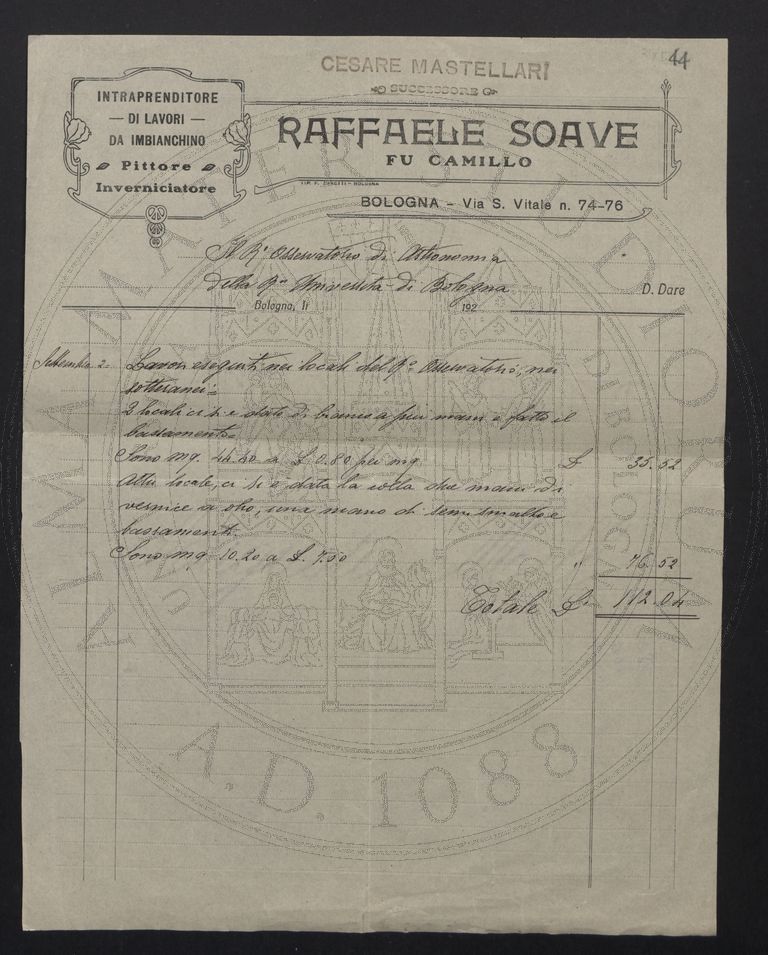 44
CESARE MASTELLARI
SUCCESSORE
INTRAPRENDITORE
— DI LAVORI —
DA IMBIANCHINO
Pittore
Inverniciatore
RAFFAELE SOAVE
FU CAMILLO
TIP. F. ZANETTI - BOLOGNA
BOLOGNA – Via S. Vitale n. 74-76
Il R° Osservatorio di Astronomia
della Ra Università di Bologna
D. Dare
Bologna, li 192
Settembre 2. Lavori eseguiti nei locali del R° Osservatorio, nei
sotteranei=
2 locali ci si è dato di bianco a più mani e fatto il
bassamento=
Sono mq. 44.40 a £ 0.80 per mq. £ 35.52
Altro locale, ci si è data la colla due mani di
vernice a olio, una mano di semismalto e
bassamenti.
Sono mq 10.20 a £. 7.50 " 76.52
Totale £ 112.04
ALMA MATER STUDIORUM
A.D. 1088